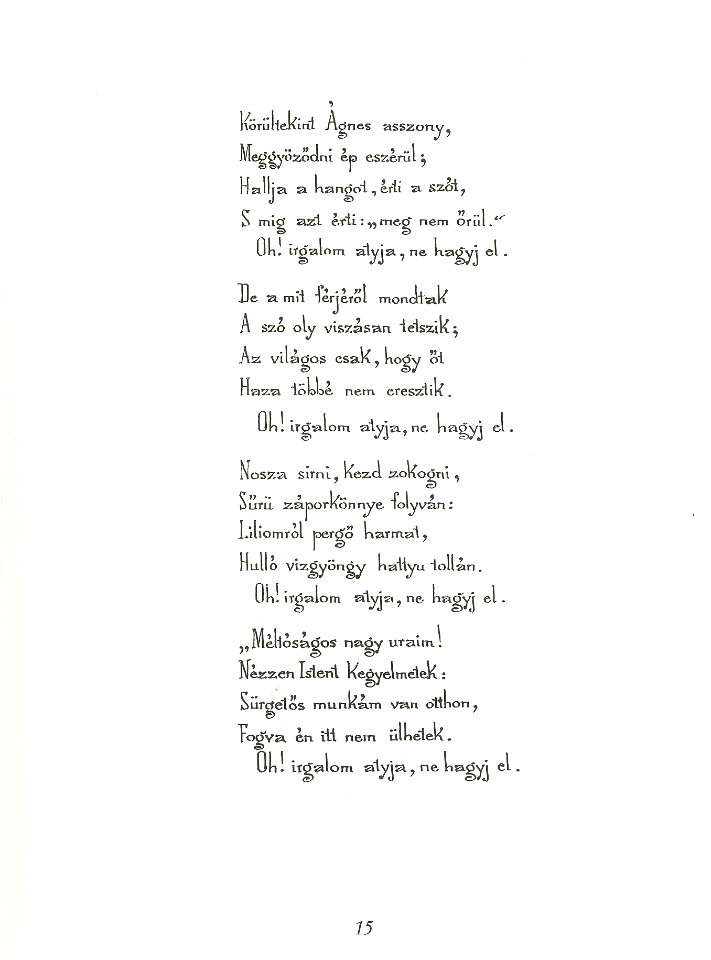 Körültekint Ágnes asszony,
Meggyőződni ép eszérül;
Hallja a hangot, érti a szót,
S mig azt érti: „meg nem őrül.“
Oh! irgalom atyja, ne hagyj el.
De a mit férjéről mondtak
A szó oly viszásan tetszik;
Az világos csak, hogy őt
Haza többé nem eresztik.
Oh! irgalom atyja, ne hagyj el.
Nosza sirni, kezd zokogni,
Sűrü záporkönnye folyván:
Liliomról pergő harmat,
Hulló vizgyöngy hattyu tollán.
Oh! irgalom atyja, ne hagyj el.
„Méltóságos nagy uraim!
Nézzen Istent Kegyelmetek:
Sürgetős munkám van otthon,
Fogva én itt nem ülhetek.
Oh! irgalom atyja, ne hagyj el.
15